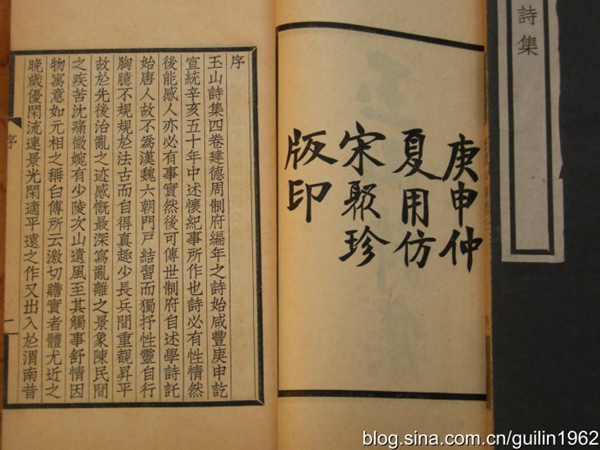 詩集
庚申仲
夏用仿
宋聚珍
版印
序
玉山詩集四卷建德周制府編年之詩始咸豐庚申訖
宣統辛亥五十年中述懷紀事所作也詩必有性情然
後能感人亦必有事實然後可傳世制府自述學詩託
始唐人故不爲漢魏六朝門戶結習而獨抒性靈自行
胸臆不規規於法古而自得真趣少長兵間重覩昇平
故於先後治亂之迹感慨最深寫亂離之景象陳民間
之疾苦沈痛微婉有少陵次山遺風至其觸事舒情因
物寓意如元相之稱白傅所云激切贍實者體尤近之
晚歲優閑流連景光閑適平遠之作又出入於渭南昔
序
一
blog.sina.com.cn/guilin1962